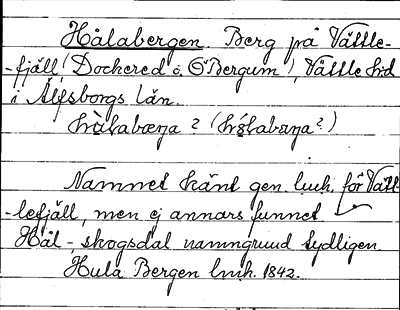 Hålabergen. Berg på Vättle-
-fjäll (Dockered o. Ö Bergum), Vättle hd
i Älfsborgs län.
hålabæŋa? (hålabæŋa?)
Namnet känt gen. lmk. för Vätt-
-lefjäll, men ej annars funnet
Hål-, skogsdal namngrund tydligen.
Hula Bergen lmk. 1842.